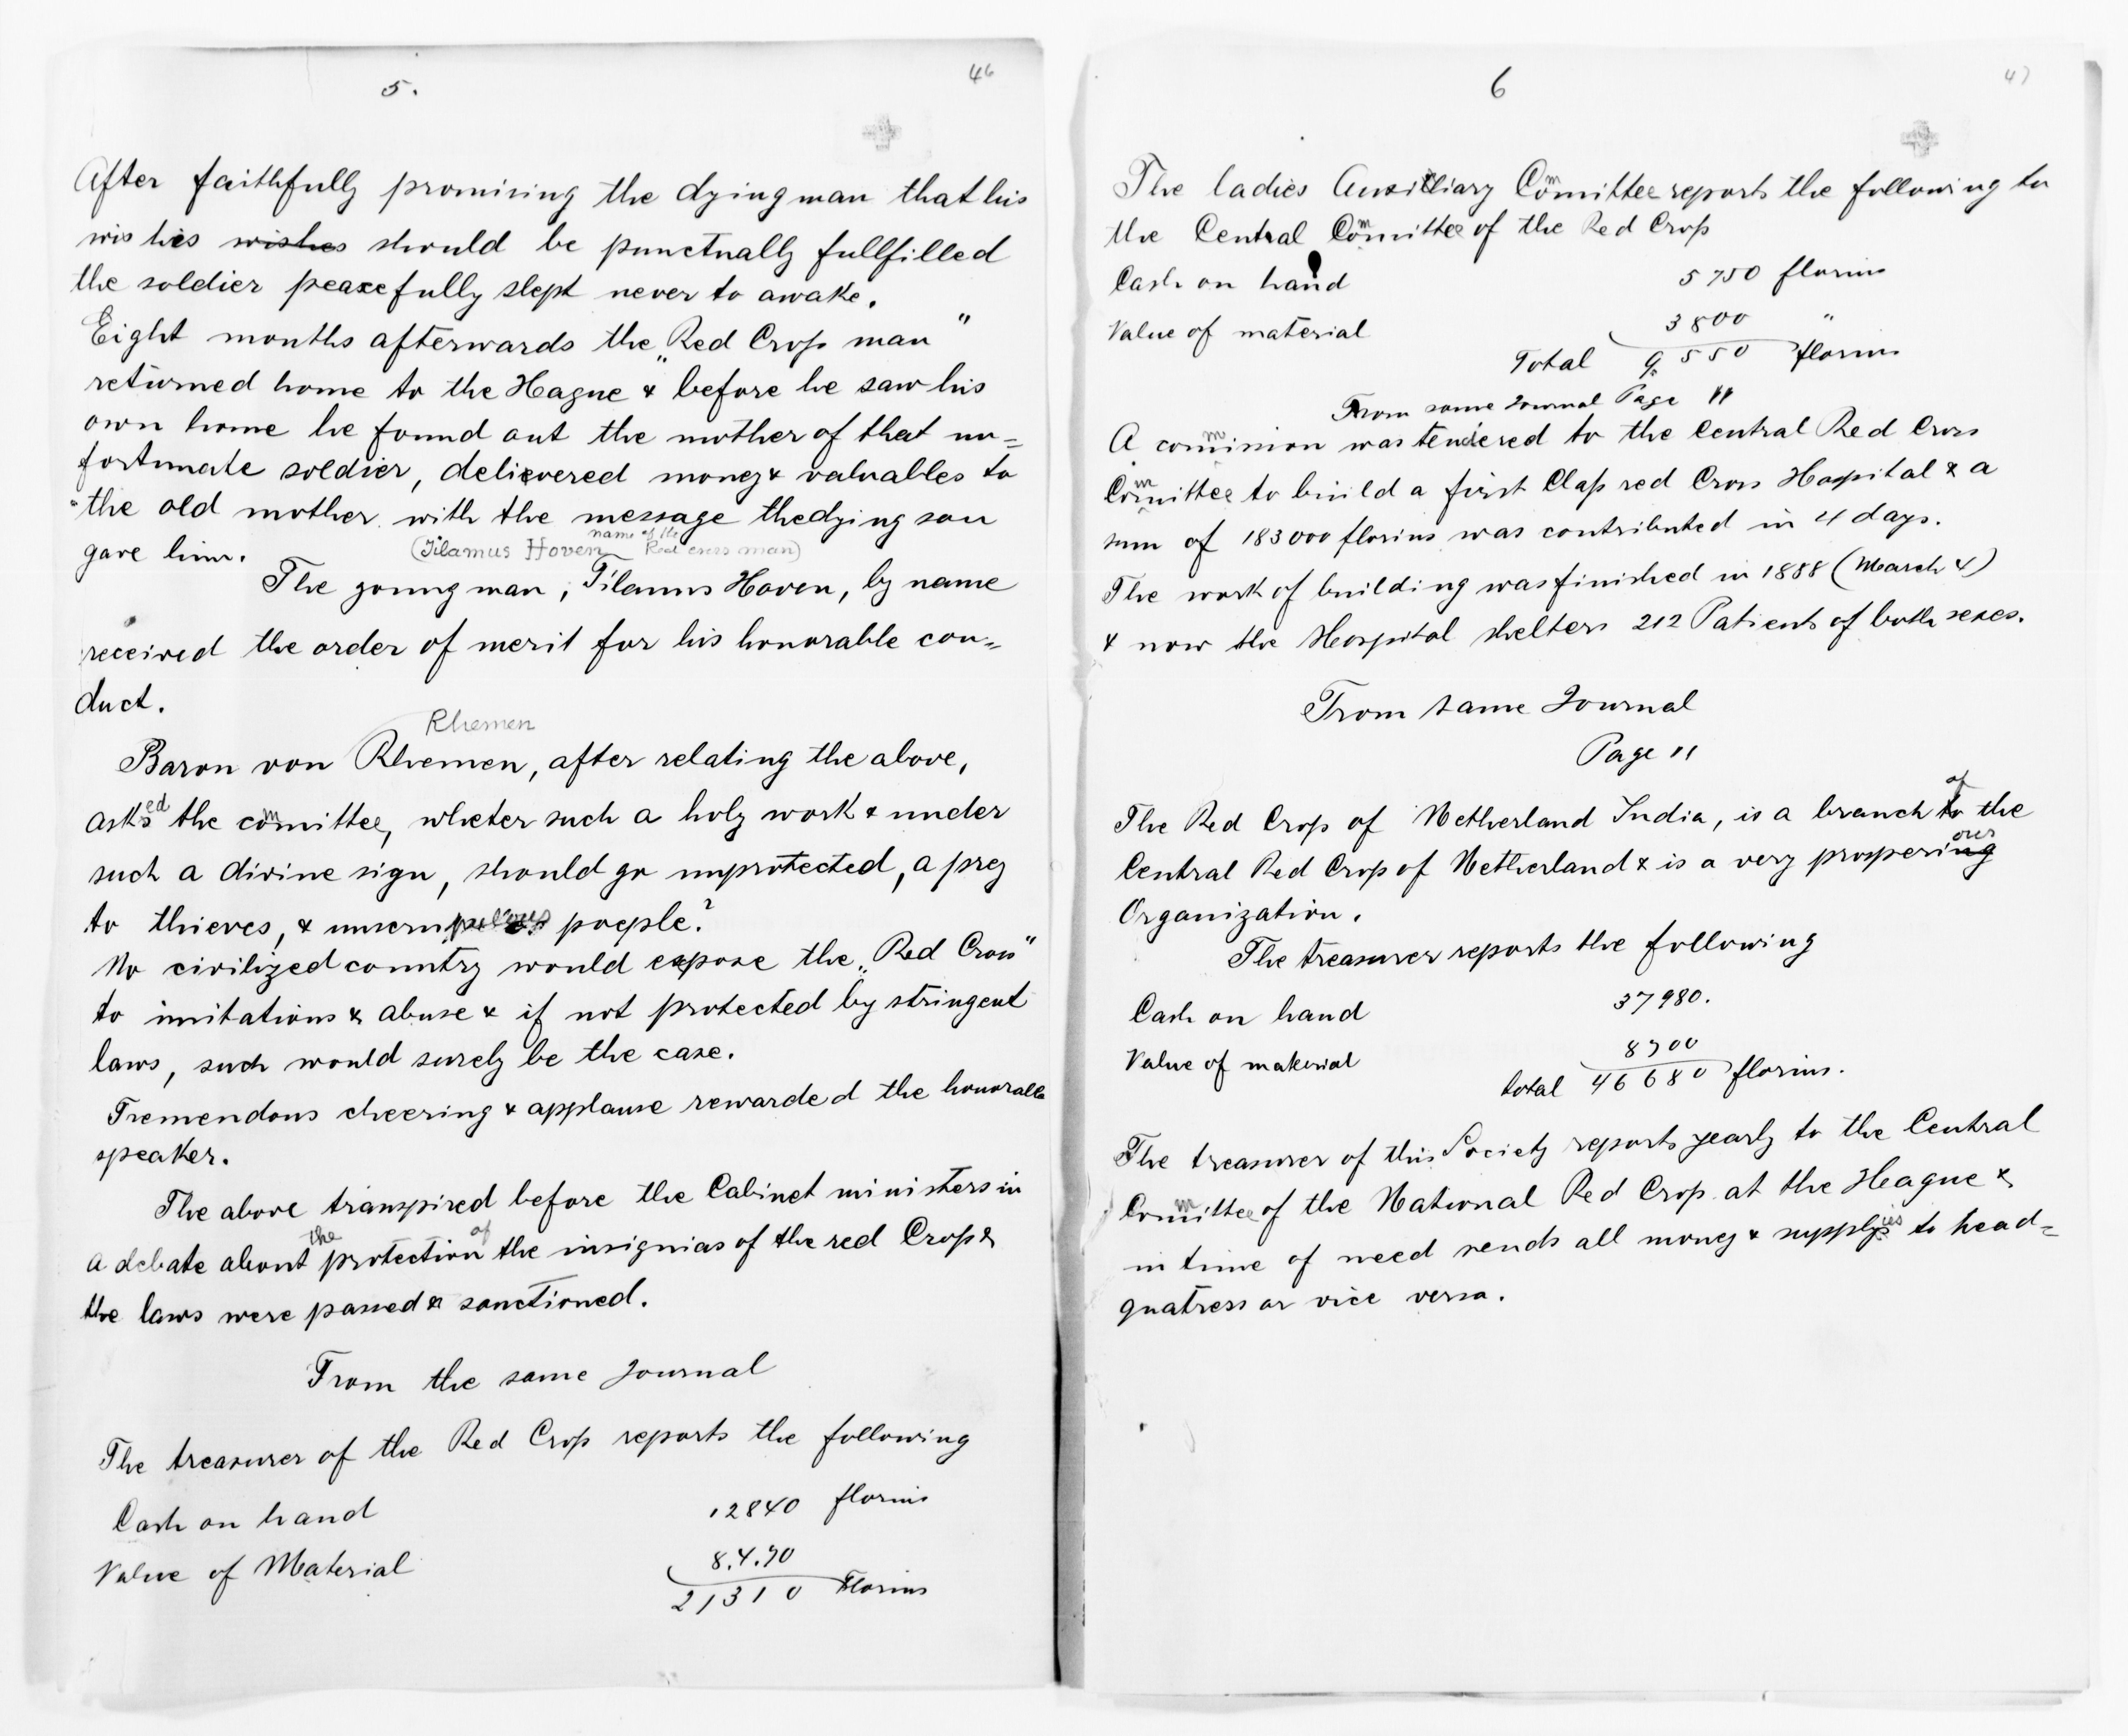 5.
46
After faithfully promising the dying man that his
wishes wishes should be punctually fullfilled
the soldier peacefully slept never to awake.
Eight months afterwards the „Red Cross man"
returned home to the Hague & before he saw his
own home he found out the mother of that un=
fortunate soldier, delivered money & valuables to
the old mother with the message the dying son
gave him.
(Tilamus Hoven name of the Red cross man)
The young man, Tilamus Hoven, by name
received the order of merit for his honorable con=
duct.
Rhemen
Baron von Rhemen, after relating the above,
asked the committee, wheter such a holy work & under
such a divine sign, should go unprotected, a prey
to thieves, & unscrupulous poeple?
No civilized country would expose the „Red Cross"
to imitations & abuse & if not protected by stringent
laws, such would surely be the case.
Tremendous cheering & applause rewarded the honorable
speaker.
The above transpired before the Cabinet ministers in
a debate about the protection of the insignias of the red Cross &
the laws were passed & sanctioned.
From the same Journal
The treasurer of the Red Cross reports the following
Cash on hand 12840 florins
Value of Material 8.4.70
21310 Florins
6
47
The ladies Auxilliary Committee reports the following to
the Central Committee of the Red Cross
Cash on hand 5750 florins
Value of material 3800 "
Total 9.550 florins
From same Journal Page 11
A commission was tendered to the Central Red Cross
Committee to build a first Class red Cross Hospital & a
sum of 183000 florins was contributed in 4 days.
The work of building was finished in 1888 (March 4)
& now the Hospital shelters 212 Patients of both sexes.
From same Journal
Page 11
The Red Cross of Netherland India, is a branch to of the
Central Red Cross of Netherland & is a very prospering ous
Organization.
The treasurer reports the following
Cash on hand 37980.
Value of material 8700
total 46680 florins.
The treasurer of this Society reports yearly to the Central
Committee of the National Red Cross at the Hague &
in time of need sends all money & supplies to head=
quatress or vice versa.